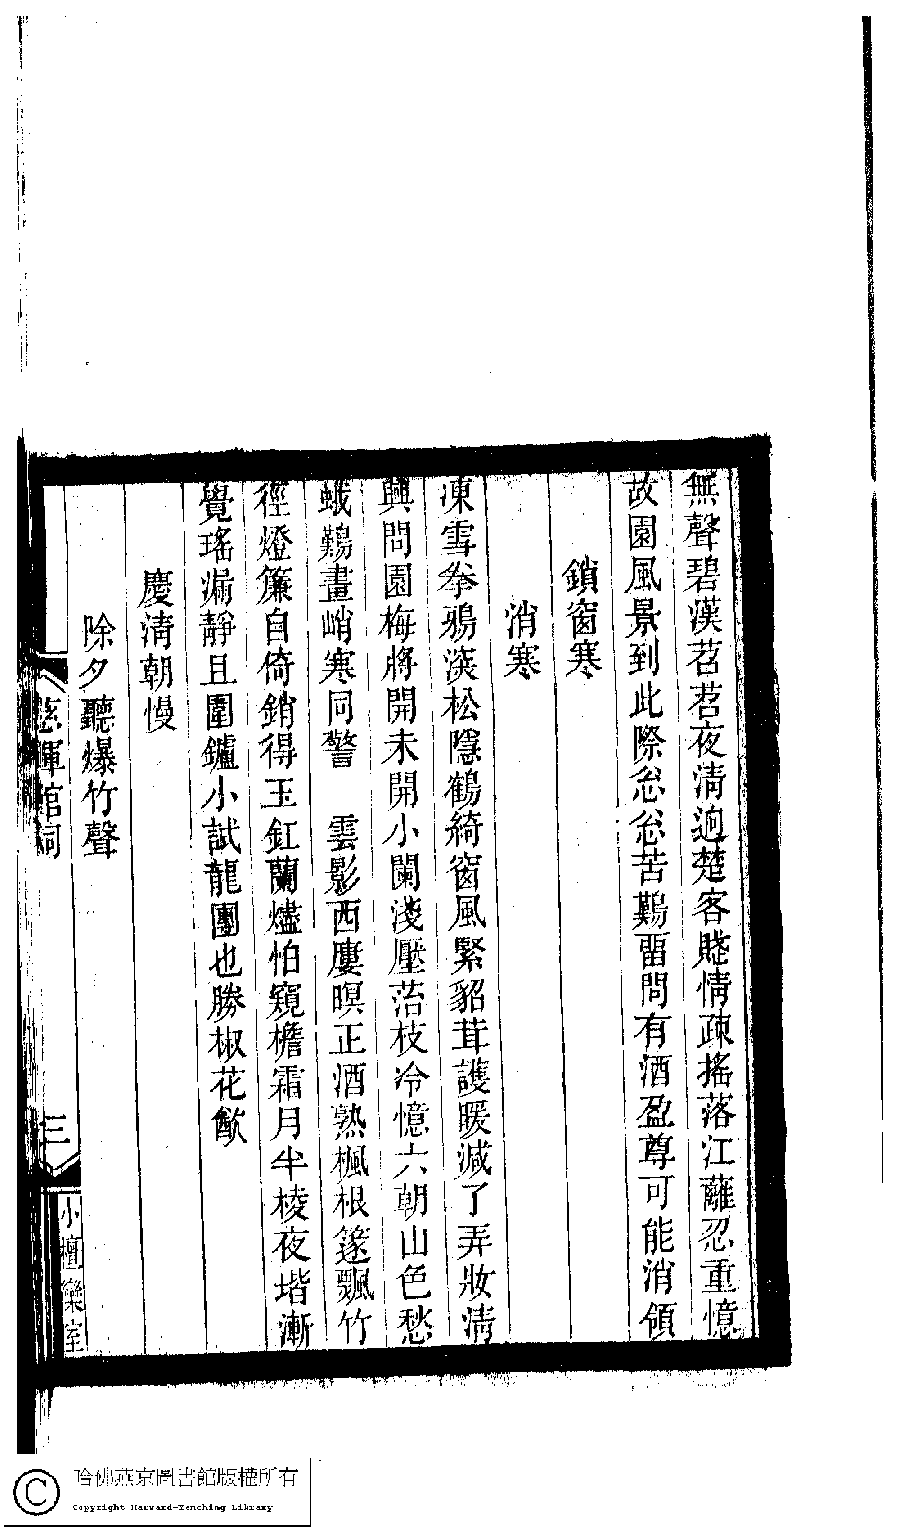 無聲碧漢苕苕夜淸逈楚客賤情疎搖落江蘺忍重憶
故園風景到此際怱怱苦難畱問有酒盈尊可能消領
鎖窗寒
消寒
凍雪拳鴉漾松隱鶴綺窗風緊貂茸護暖減了弄妝淸
興問園梅將開未開小闌淺壓萡枝冷憶六朝山色愁
蛾難畫峭寒同警　雲影西廔暝正酒熟楓根篴飄竹
徑燈簾自倚銷得玉釭蘭燼怕窺檐霜月半棱夜堦漸
覺瑤漏靜且圍鑪小試龍團也勝椒花飮
慶淸朝慢
除夕聽爆竹聲
慈暉館詞
三
小檀欒室
哈佛燕京圖書館版權所有
Copyright Harvard-Yenching Library